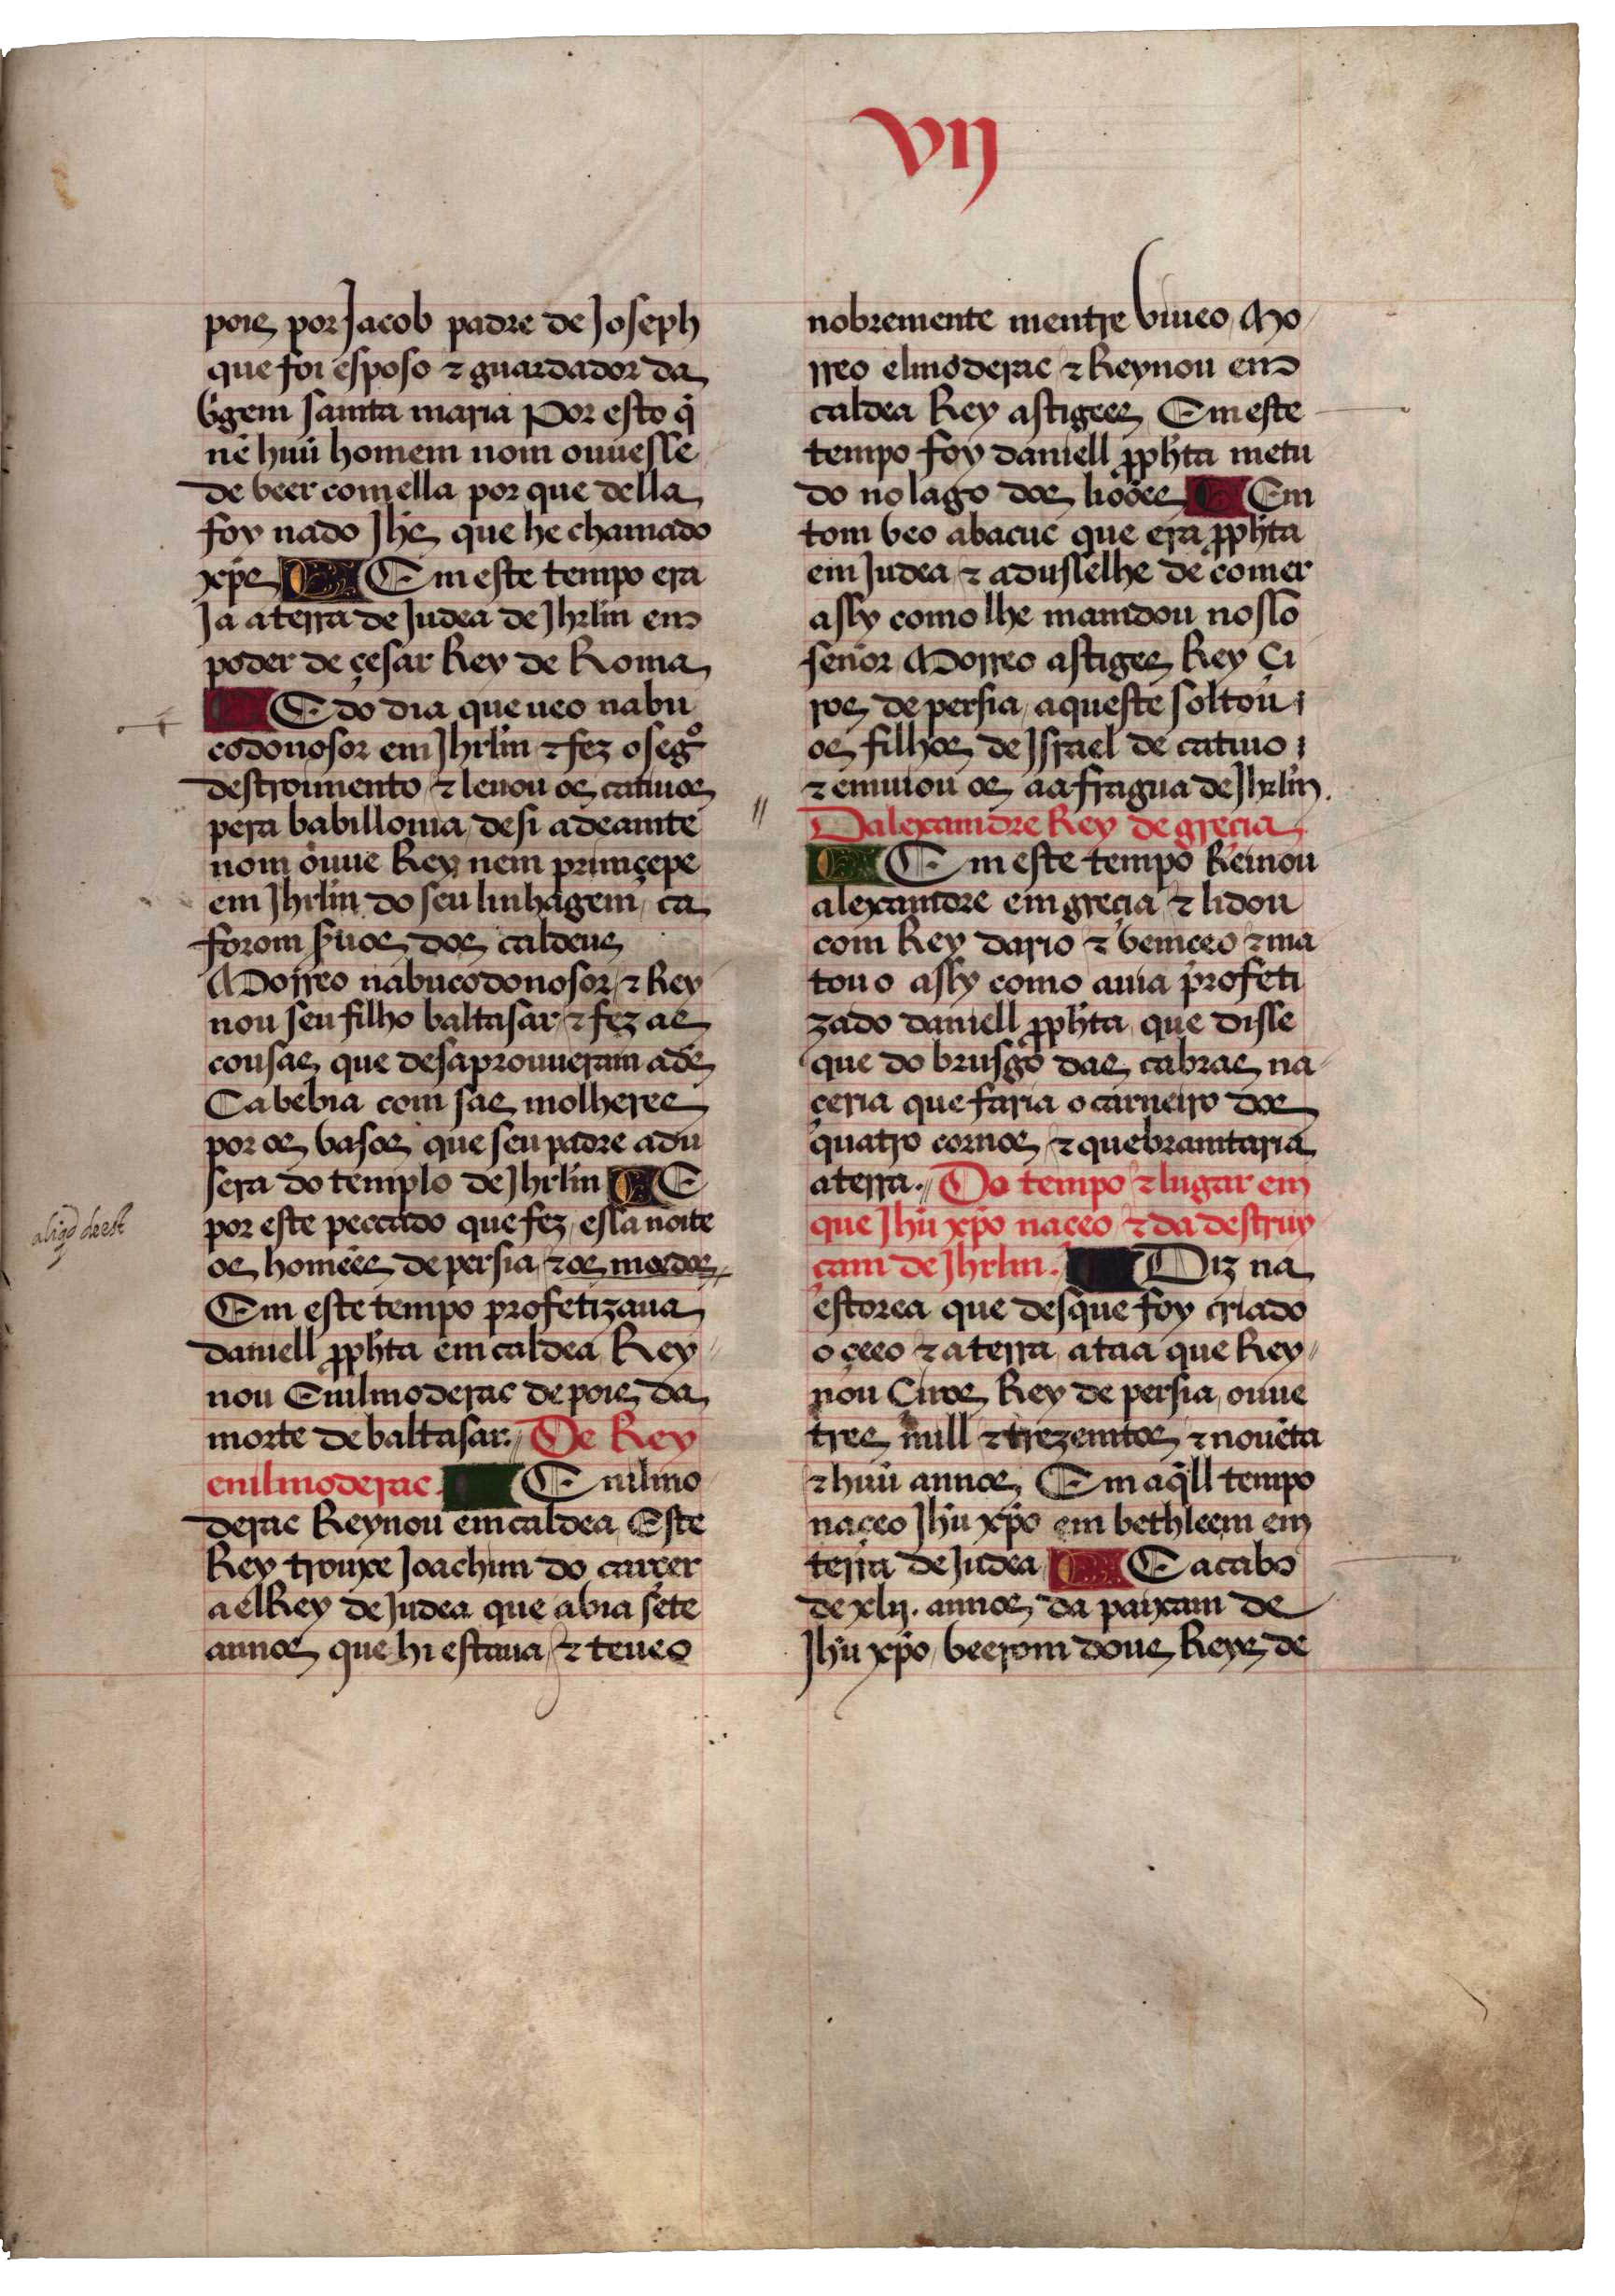 VII
pois por Jacob padre de Joseph
que foi esposo ⁊ guardador da
v̓gem samta maria Por esto q̃
nẽ huũ homem nom ouuesse
de veer com ella por que della
foy nado Jhs que he chamado
xp̃s Em este tempo era
Ja a terra de Judea de Jhrlm em
poder de çesar Rey de Roma
E do dia que ueo nabu
codonosor em Jhrlm ⁊ fez o segº
destroimento ⁊ leuou os catiuos
pera babillonia desi adeamte
nom ouue Rey nem primçepe
em Jhrlm do seu linhagem ca
forom s̃uos dos caldeus
Morreo nabucodonosor ⁊ Rey
nou seu filho baltasar ⁊ fez as
cousas que desaprouuueram a ds
Ca bebia com sas molheres
por os vasos que seu padre adu
sera do templo de Jhrlm E
por este peccado que fez essa noite
os homẽes de persia ⁊ os medos
Em este tempo profetizaua
daniell p̃ph̃ta em caldea Rey
nou Euilmoderac depois da
morte de baltasar. De Rey
enilmoderac. Enilmo
derac Reynou em caldea Este
Rey trouxe Joachim do carçer
a elRey de Judea que abia sete
annos que hi estaua ⁊ teueo
aliqd deest
nobremente mentre viueo Mo
rreo elmoderac ⁊ Reynou em
caldea Rey astiges Em este
tempo foy daniell p̃ph̃ta metu
do no lago dos liõoes Em
tom veo abacuc que era p̃ph̃ta
em Judea ⁊ adusselhe de comer
assy como lhe mamdou nosso
señor Morreo astiges Rey Çi
ros de persia aqueste soltou
os filhos de Jsrael de catiuo
⁊ emuiou os aa fragua de Jhrlm.
Dalexamdre Rey de greçia
Em este tempo Reinou
alexamdre em greçia ⁊ lidou
com Rey dario ⁊ vemceo ⁊ ma
tou o assy como auia profeti
zado daniell p̃ph̃ta que disse
que do brusgo das cabras na
çeria que faria o carneiro dos
quatro cornos ⁊ quebramtaria
a terra. Do tempo ⁊ lugar em
que Jhũ xp̃o naçeo ⁊ da destruy
çam de Jhrlm. Diz na
estorea que desque foy criado
o çeeo ⁊ a terra ataa que Rey
nou Çiros Rey de persia ouue
tres mill ⁊ trezemtos ⁊ nouẽta
⁊ huũ annos Em aq̃ll tempo
naçeo Jhũ xp̃o em bethleem em
terra de Judea E acabo
de xlij. annos da paixam de
Jhũ xp̃o veerom dous Reys de